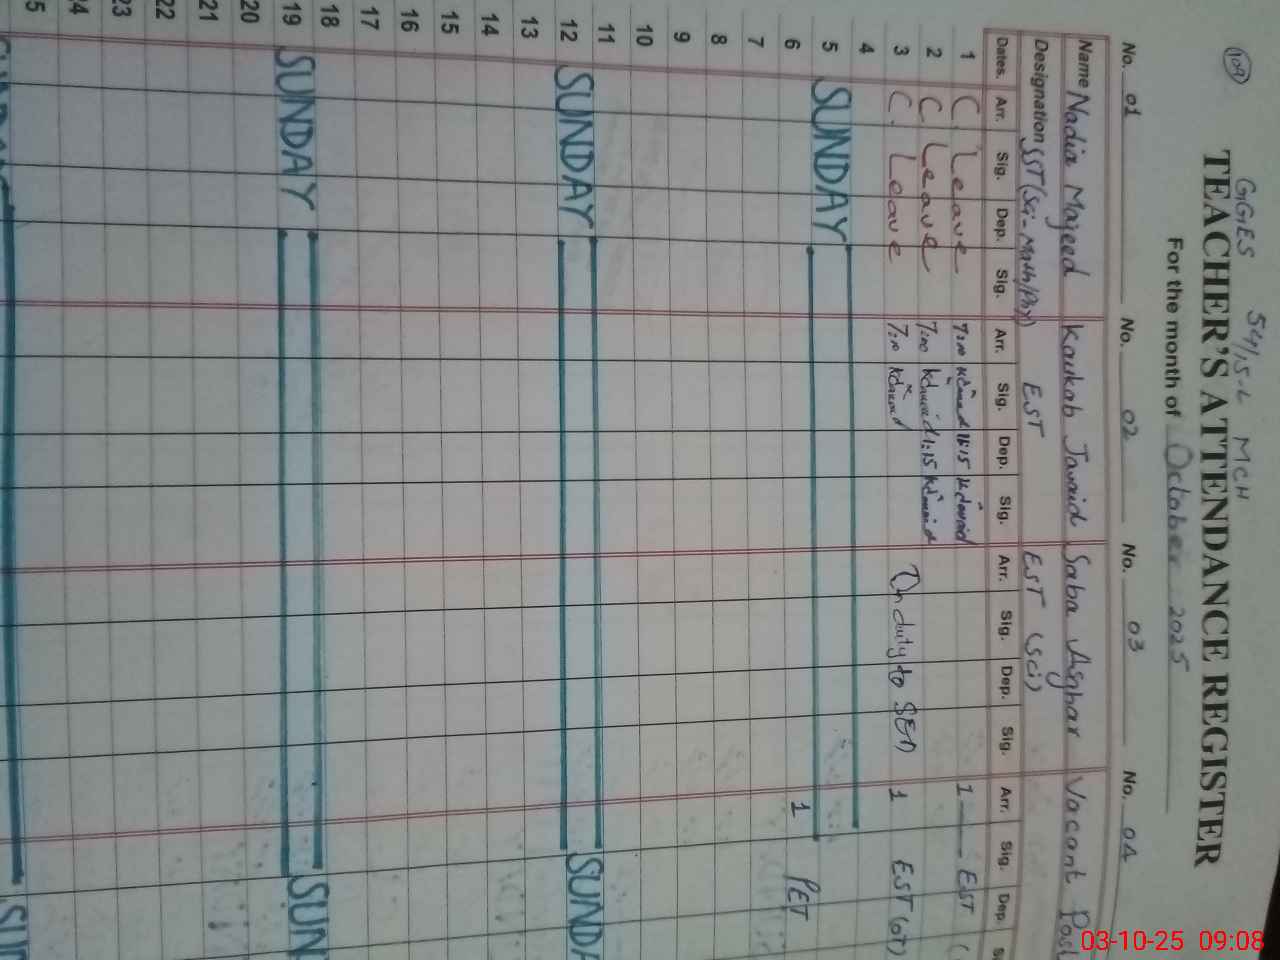 109
GGES 54/15-L MCH
TEACHER'S ATTENDANCE REGISTER
For the month of October 2025
No. 01 No. 02 No. 03 No. 04
Name Nadia Majeed Kaukab Javaid Saba Asghar Vacant Post
Designation SST(Sci-Math/Phy) EST EST (Sci)
Dates. Arr. Sig. Dep. Sig. Arr. Sig. Dep. Sig. Arr. Sig. Dep. Sig. Arr. Sig. Dep.
1 C. Leave 7:00 KJavaid 1:15 KJavaid 1 — EST
2 C. Leave 7:00 KJavaid 1:15 KJavaid
3 C. Leave 7:00 KJavaid On duty to SED 1 EST (OT)
4
5 SUNDAY
6 1 PET
7
8
9
10
11
12 SUNDAY SUNDA
13
14
15
16
17
18
19 SUNDAY SUN
20
21
22
23
24
25
03-10-25 09:08